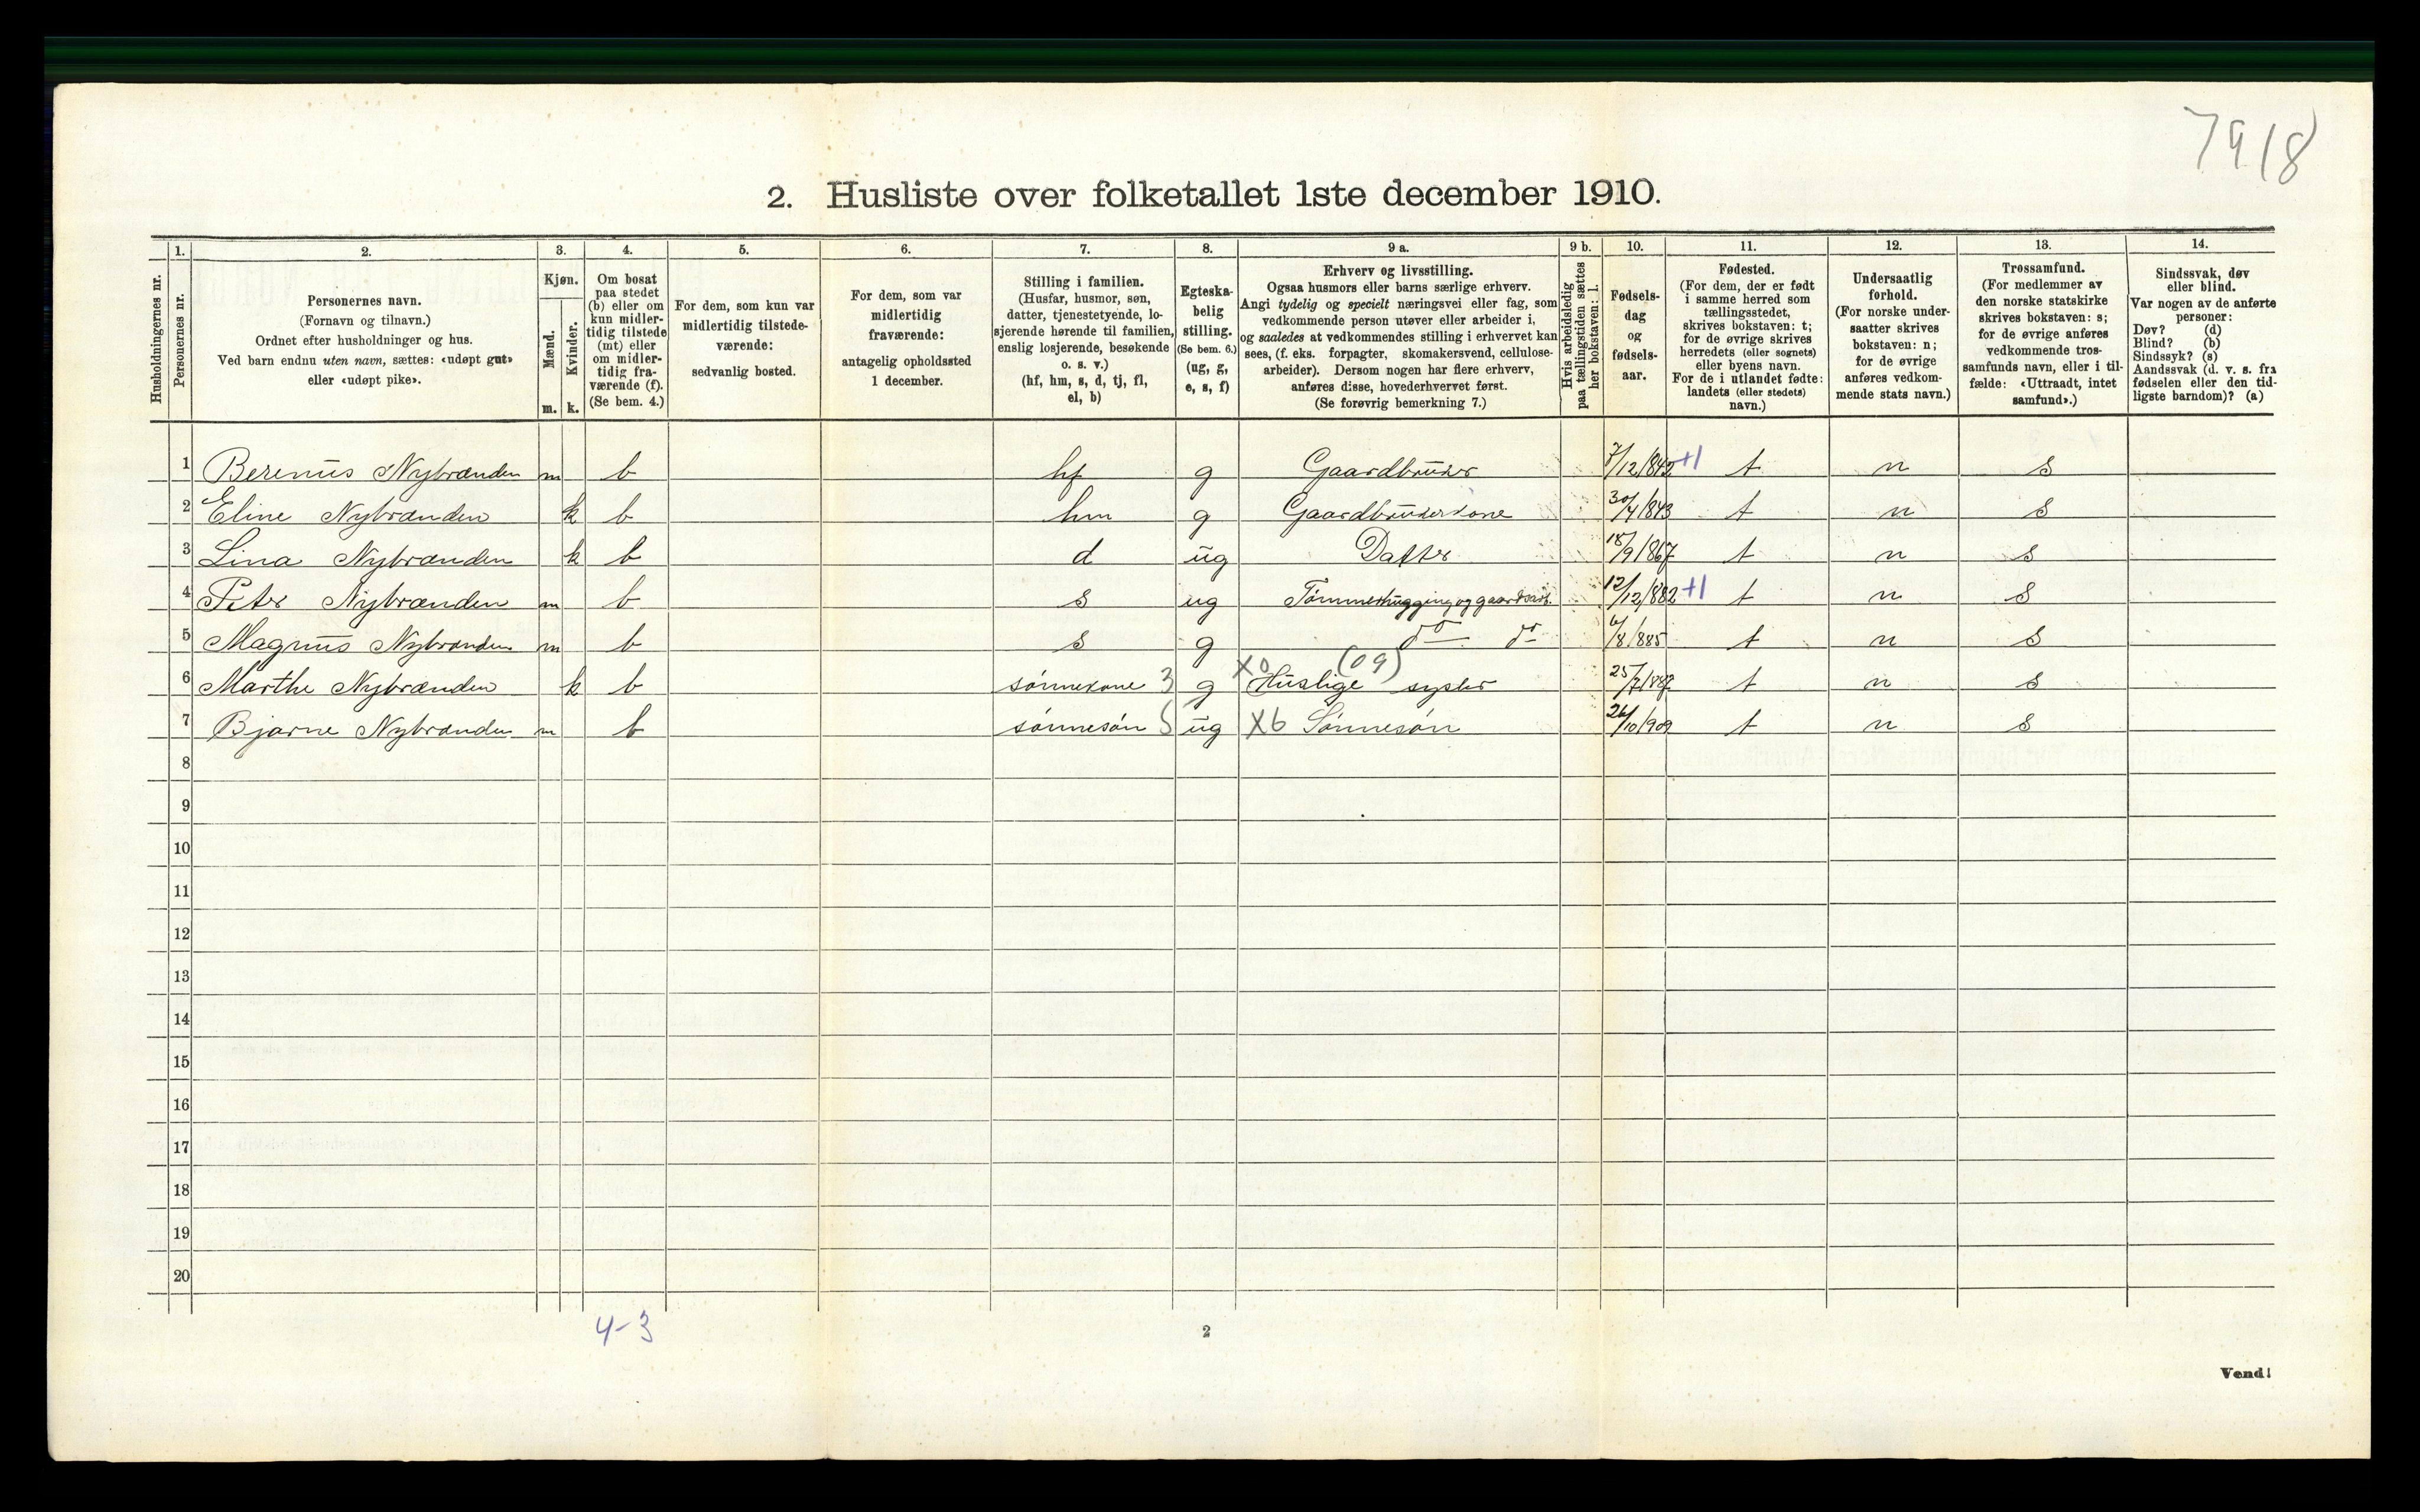 7918
2. Husliste over folketallet 1ste december 1910.
Husholdningernes nr.
1.
Personernes nr.
2.
Personernes navn.
(Fornavn og tilnavn.)
Ordnet efter husholdninger og hus.
Ved barn endnu uten navn, sættes: «udøpt gut»
eller «udøpt pike».
3.
Kjøn.
Mænd.
Kvinder.
m. k.
4.
Om bosat
paa stedet
(b) eller om
kun midler-
tidig tilstede
(mt) eller
om midler-
tidig fra-
værende (f).
(Se bem. 4.)
5.
For dem, som kun var
midlertidig tilstede-
værende:
sedvanlig bosted.
6.
For dem, som var
midlertidig
fraværende:
antagelig opholdssted
1 december.
7.
Stilling i familien.
(Husfar, husmor, søn,
datter, tjenestetyende, lo-
sjerende hørende til familien,
enslig losjerende, besøkende
o. s. v.)
(hf, hm, s, d, tj, fl,
el, b)
8.
Egteska-
belig
stilling.
(Se bem. 6.)
(ug, g,
e, s, f)
9 a.
Erhverv og livsstilling.
Ogsaa husmors eller barns særlige erhverv.
Angi tydelig og specielt næringsvei eller fag, som
vedkommende person utøver eller arbeider i,
og saaledes at vedkommendes stilling i erhvervet kan
sees, (f. eks. forpagter, skomakersvend, cellulose-
arbeider). Dersom nogen har flere erhverv,
anføres disse, hovederhvervet først.
(Se forøvrig bemerkning 7.)
9 b.
Hvis arbeidsledig
paa tællingstiden sættes
her bokstaven: l.
10.
Fødsels-
dag
og
fødsels-
aar.
11.
Fødested.
(For dem, der er født
i samme herred som
tællingsstedet,
skrives bokstaven: t;
for de øvrige skrives
herredets (eller sognets)
eller byens navn.
For de i utlandet fødte:
landets (eller stedets)
navn.)
12.
Undersaatlig
forhold.
(For norske under-
saatter skrives
bokstaven: n;
for de øvrige
anføres vedkom-
mende stats navn.)
13.
Trossamfund.
(For medlemmer av
den norske statskirke
skrives bokstaven: s;
for de øvrige anføres
vedkommende tros-
samfunds navn, eller i til-
fælde: «Uttraadt, intet
samfund».)
14.
Sindssvak, døv
eller blind.
Var nogen av de anførte
personer:
Døv? (d)
Blind? (b)
Sindssyk? (s)
Aandssvak (d. v. s. fra
fødselen eller den tid-
ligste barndom)? (a)
1 Berenus Nybrænden m b hf g Gaardbruker 7/12/842 +1 t n s
2 Eline Nybrænden k b hm g Gaardbrukerkone 30/4/843 t n s
3 Lina Nybrænden k b d ug Datter 18/9/867 t n s
4 Peter Nybrænden m b s ug Tømmerhugging og gaardsarb. 12/12/882 +1 t n s
5 Magnus Nybrænden m b s g do do 6/8/885 t n s
6 Marthe Nybrænden k b sønnekone 3 g X0 (09) Huslige sysler 25/7/887 t n s
7 Bjarne Nybrænden m b sønnesøn 5 ug X6 Sønnesøn 26/10/909 t n s
8
9
10
11
12
13
14
15
16
17
18
19
20
4-3
2
Vend!